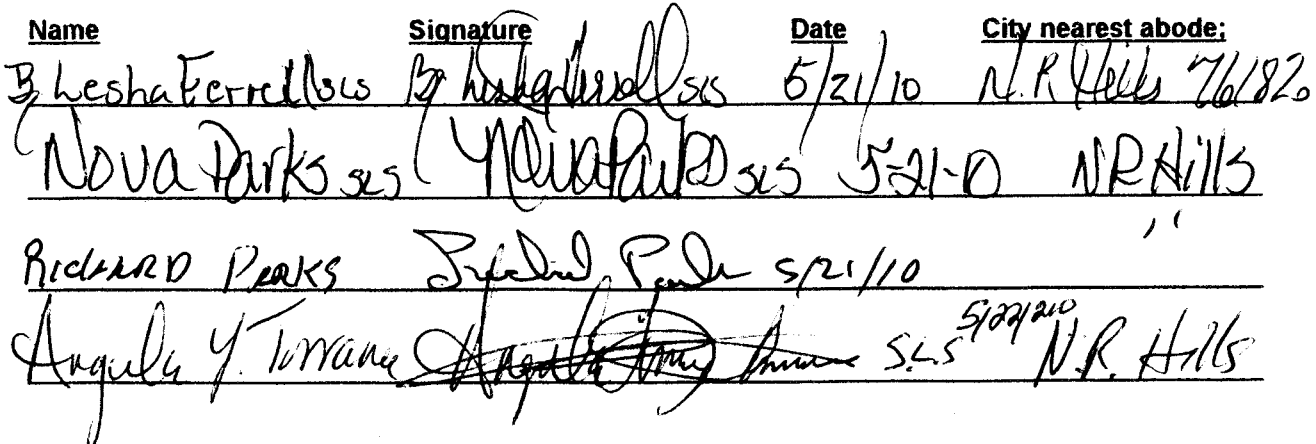 Name Signature Date City nearest abode;
B Lesha Ferrell SLS B Lesha Ferrell SLS 5/21/10 N.R Hills 76182
Nova Parks SLS Nova Parks SLS 5-21-10 NR Hills
RICHARD PARKS 5/21/10 ''
Angela Y. Torrance S.L.S 5/22/210 N.R. Hills